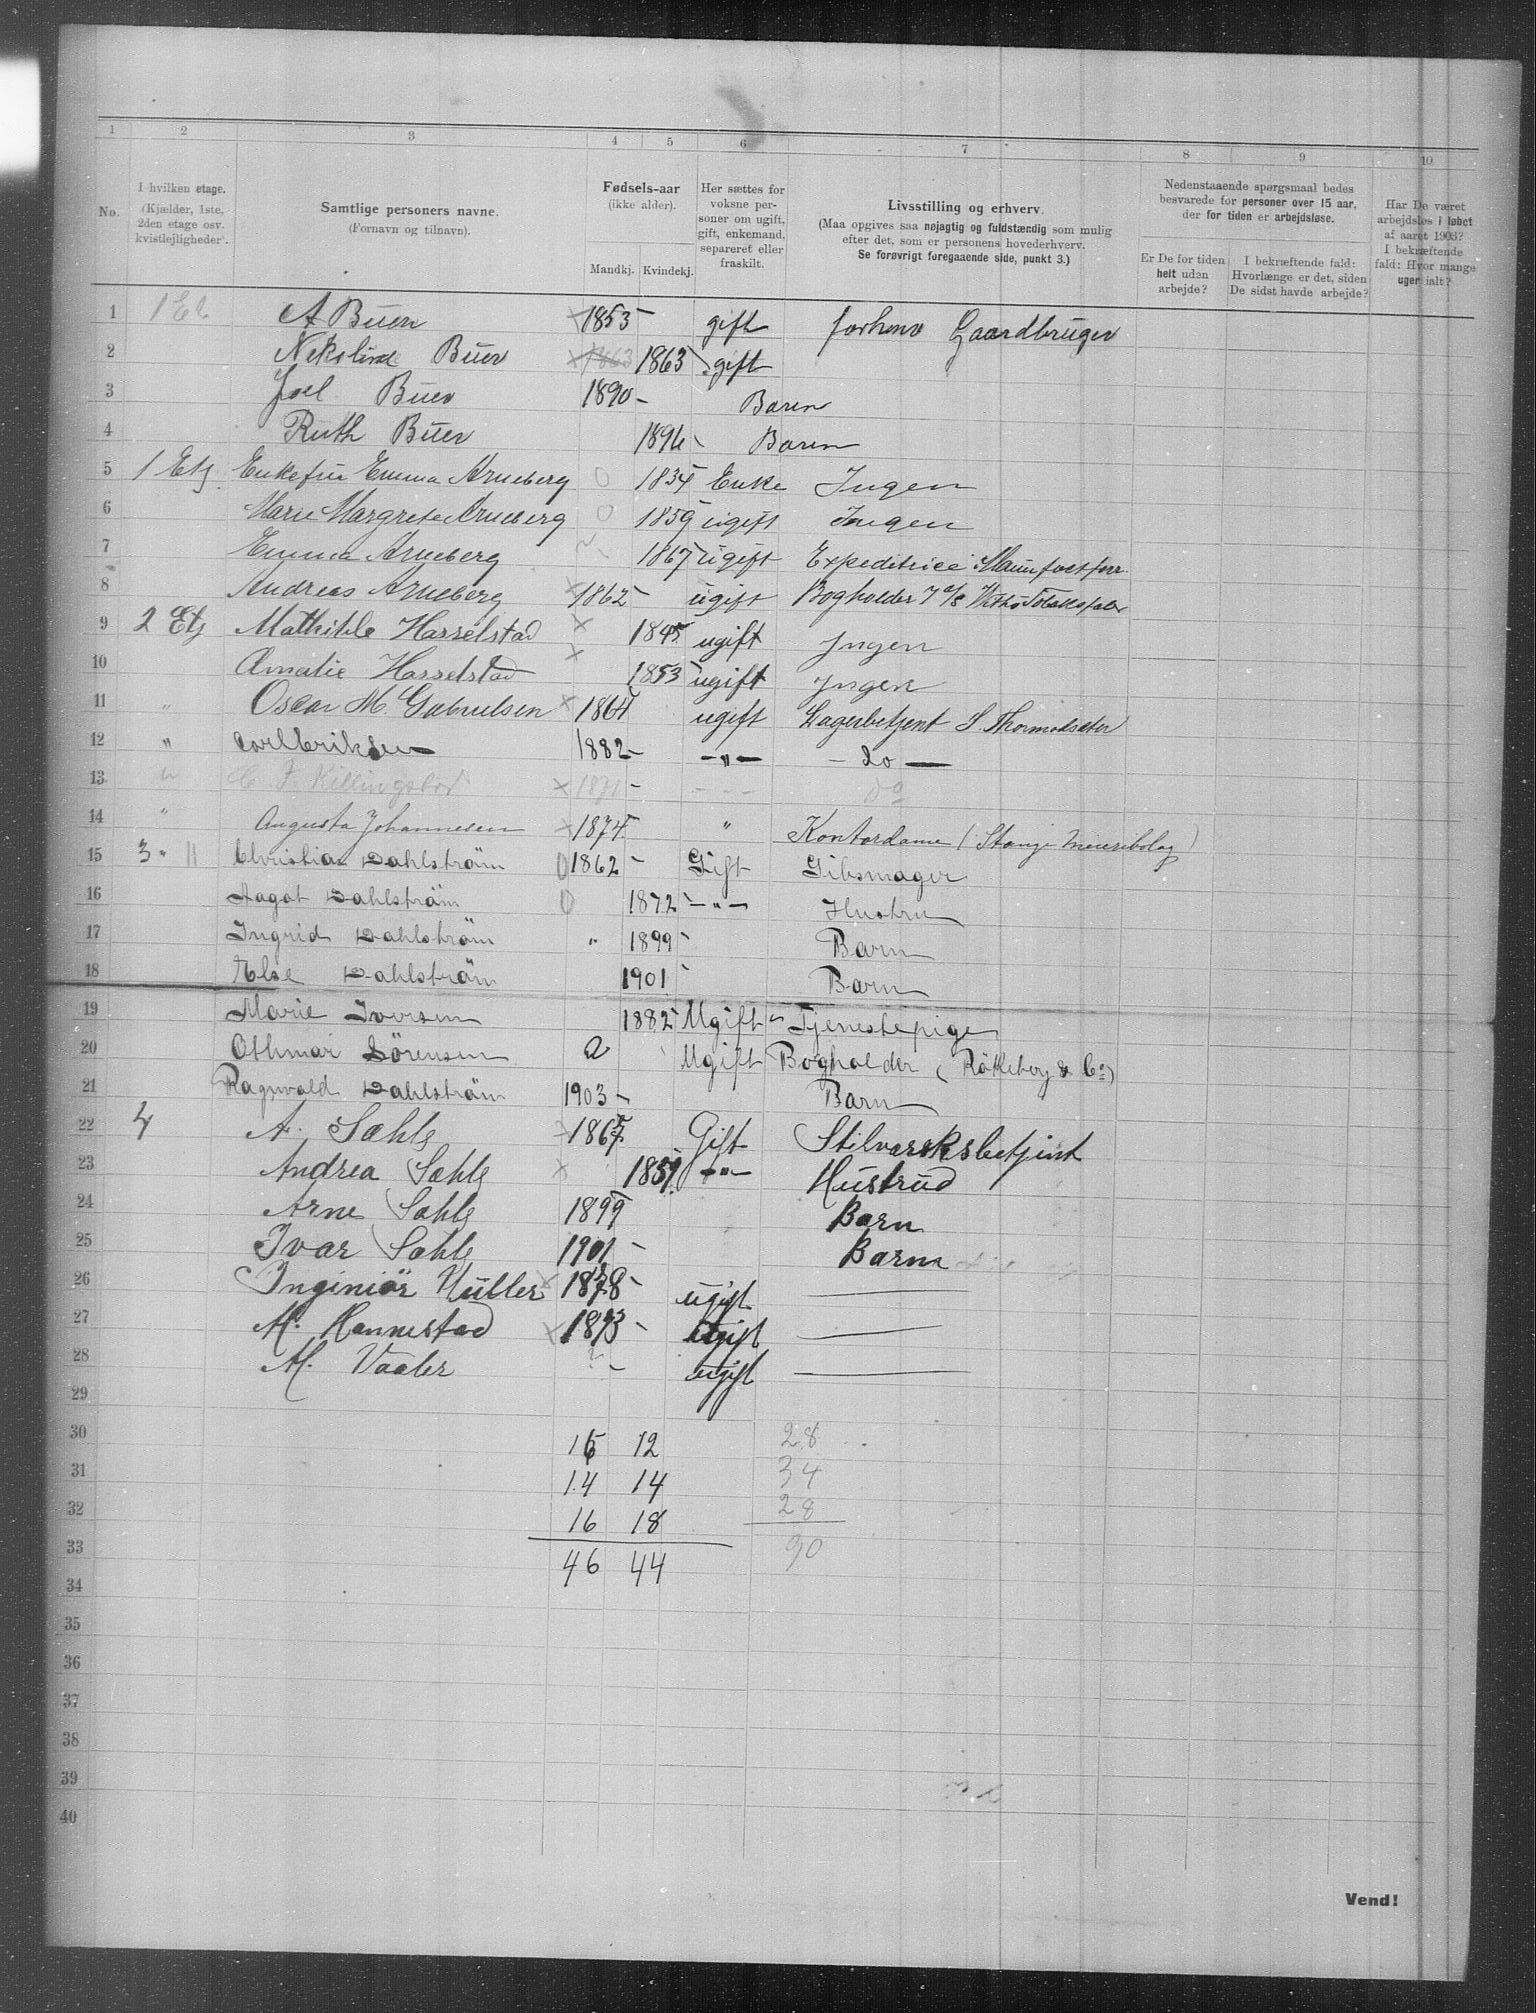 1 2 3 4 5 6 7 8 9 10
No.
I hvilken etage.
(Kjælder, 1ste,
2den etage osv.
kvistlejligheder).
Samtlige personers navne.
(Fornavn og tilnavn).
Fødsels-aar
(ikke alder).
Mandkj. Kvindekj.
Her sættes for
voksne per-
soner om ugift,
gift, enkemand,
separeret eller
fraskilt.
Livsstilling og erhverv.
(Maa opgives saa nøjagtig og fuldstændig som mulig
efter det, som er personens hovederhverv.
Se forøvrigt foregaaende side, punkt 3.)
Nedenstaaende spørgsmaal bedes
besvarede for personer over 15 aar,
der for tiden er arbejdsløse.
Er De for tiden
helt uden
arbejde?
I bekræftende fald:
Hvorlænge er det, siden
De sidst havde arbejde?
Har De været
arbejdsløs i løbet
af aaret 1903?
I bekræftende
fald: Hvor mange
uger ialt?
1 1 Et A Buer × 1853 - gift forhenv Gaardbruger
2 Nekoline Buer × 1863 1863 gift
3 Joel Buer 1890 - Barn
4 Ruth Buer 1896 - Barn
5 1 Etg. Enkefru Emma Arneberg 0 1834 Enke Ingen
6 Marie Margrete Arneberg 0 1859 ugift Ingen
7 Emma Arneberg 1867 ugift Expeditrice i
8 Andreas Arneberg × 1862 - ugift Bogholder
9 2 Etg Mathilde Hasselstad × 1845 ugift Ingen
10 Amalie Hasselstad × 1853 ugift Ingen
11 " Oscar M. Gabrielsen × 1864 ugift Lagerbetjent S. Thormodsæter
12 " Carl Eriksen 1882 - — " — — do —
13 " C. F. Killingstad × 1871 - - - - do
14 " Augusta Johannesen × 1874 " Kontordame ( Stange Meieribolag )
15 3 " " Christian Dahlström 0 1862 - Gift Gibsmager
16 Aagot Dahlström 0 1872 - — " — Hustru
17 Ingrid Dahlström " 1899 - Barn
18 Else Dahlström 1901 - Barn
19 Marie Iversen 1882 - Ugift Tjenestepige
20 Othmar Sörensen Ugift Bogholder ( Røtkeberg & Co )
21 Ragnvald Dahlström 1903 - Barn
22 4 A. Sæhle 1867 Gift Stilværksbetjent
23 Andrea Sæhle × 1859 — " — Hustrud
24 Arne Sæhle 1899 Barn
25 Ivar Sæhle 1901 - Barn
26 Inginiör Müller × 1878 - ugift —
27 M. Hannestad × 1873 - ugift —
28 M. Vaaler ? - ugift —
29
30 16 12 28
31 14 14 34
32 16 18 28
33 46 44 90
34
35
36
37
38
39
40
Vend!